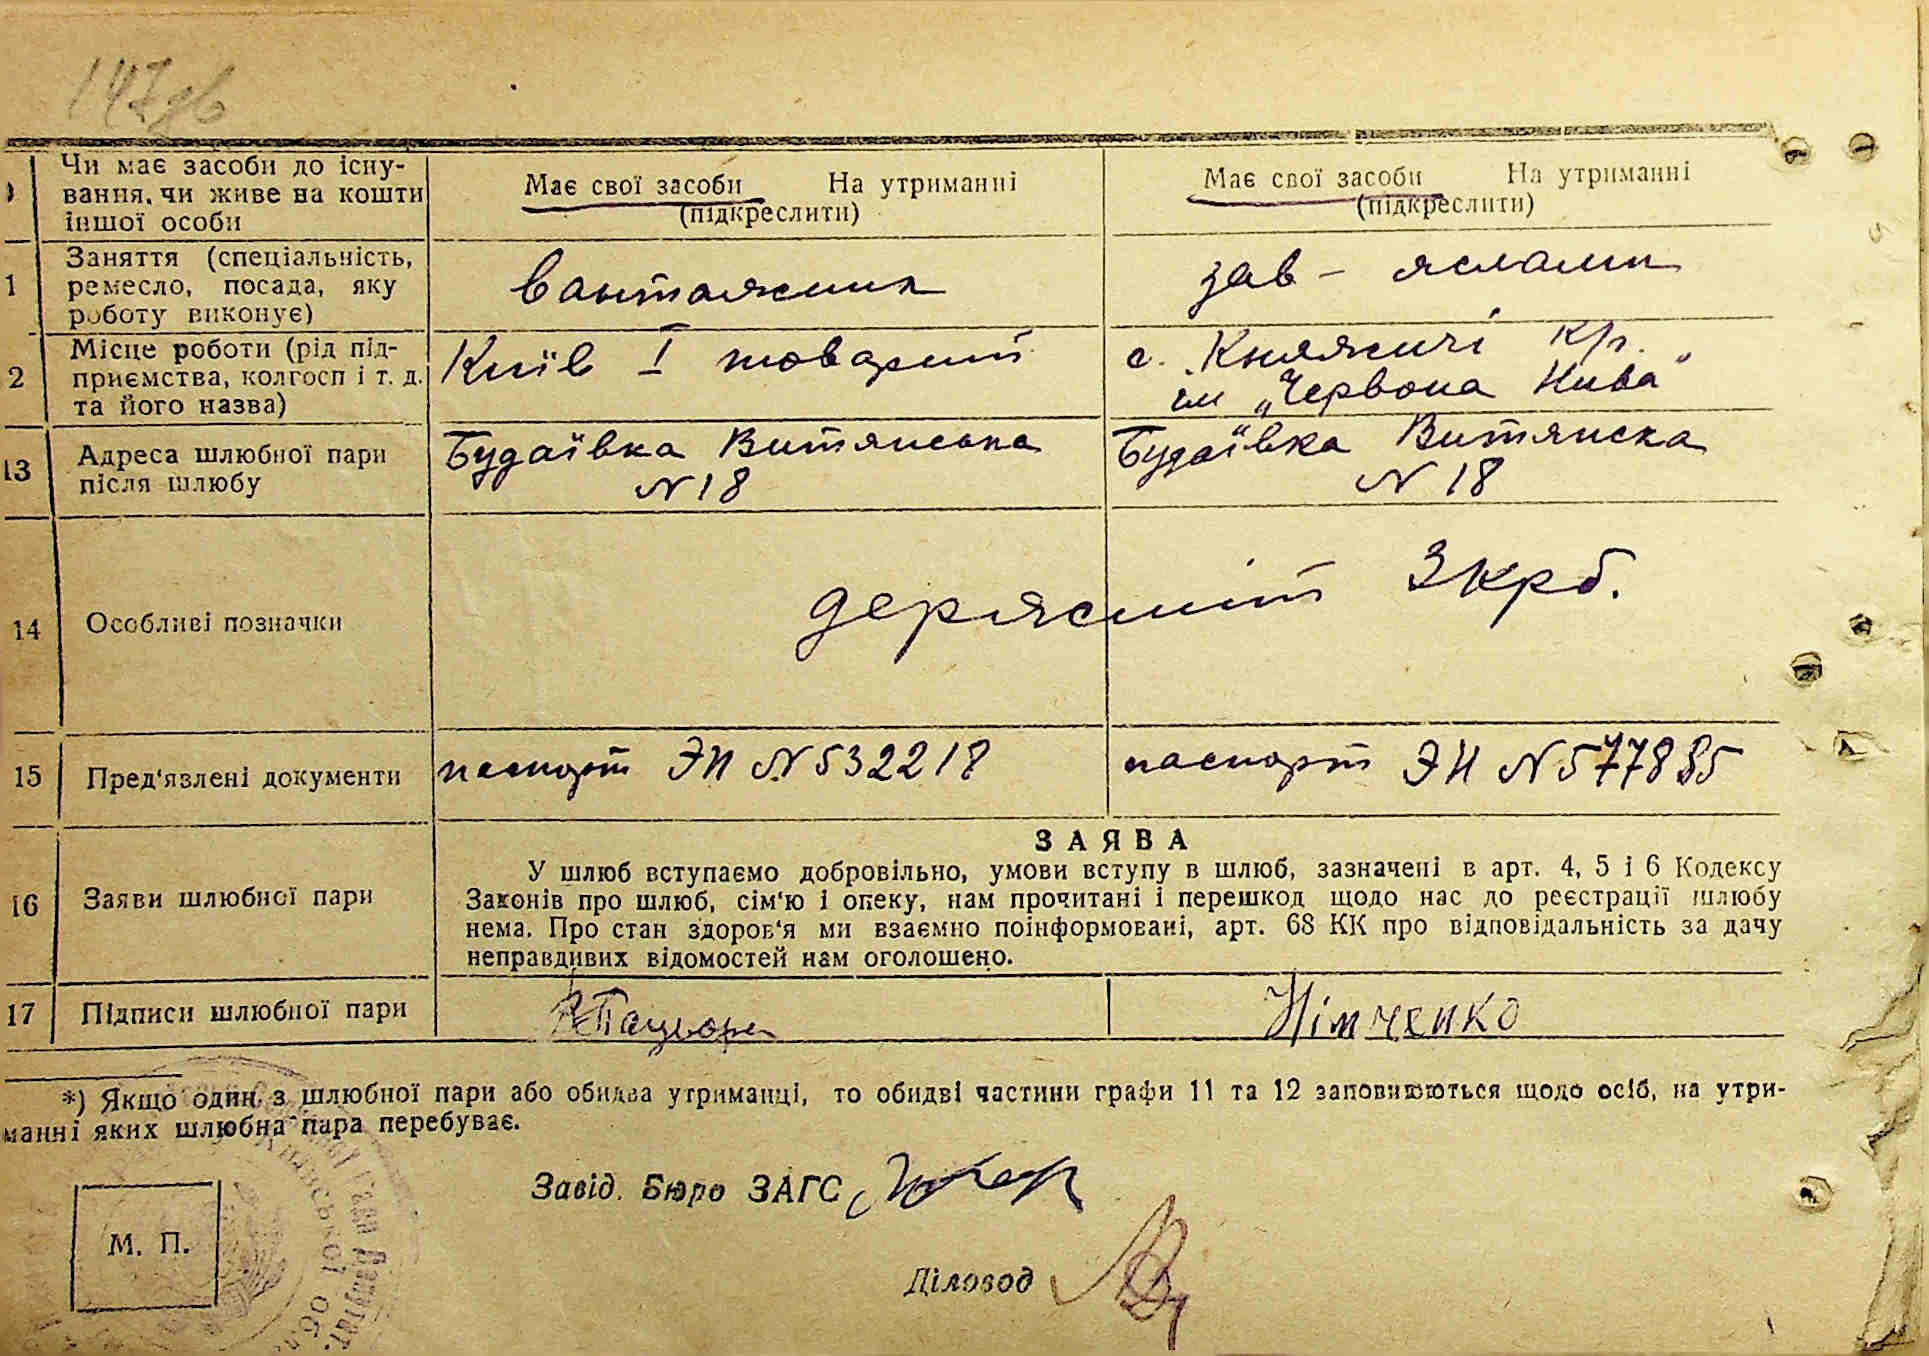 147зв
Чи має засоби до існу-
вання, чи живе на кошти
іншої особи
Має свої засоби На утриманні
(підкреслити)
Має свої засоби На утриманні
(підкреслити)
1 Заняття (спеціальність,
ремесло, посада, яку
роботу виконує)
вантажник
зав - яслами
2 Місце роботи (рід під-
приємства, колгосп і т. д.
та його назва)
Київ I товарний
с. Княжичі Кр.
ім „Червона Нива"
13 Адреса шлюбної пари
після шлюбу
Будаївка Витянська
N 18
Будаївка Витянска
N 18
14 Особливі позначки
держмит 3 крб.
15 Пред'язлені документи
паспорт ЭИ N 532218
паспорт ЭИ N 577885
16 Заяви шлюбної пари
ЗАЯВА
У шлюб вступаємо добровільно, умови вступу в шлюб, зазначені в арт. 4, 5 і 6 Кодексу
Законів про шлюб, сім'ю і опеку, нам прочитані і перешкод щодо нас до реєстрації шлюбу
нема. Про стан здоров'я ми взаємно поінформовані, арт. 68 КК про відповідальність за дачу
неправдивих відомостей нам оголошено.
17 Підписи шлюбної пари
Німченко
*) Якщо один з шлюбної пари або обидва утриманці, то обидві частини графи 11 та 12 заповнюються щодо осіб, на утри-
манні яких шлюбна пара перебуває.
Завід. Бюро ЗАГС
М. П.
Діловод